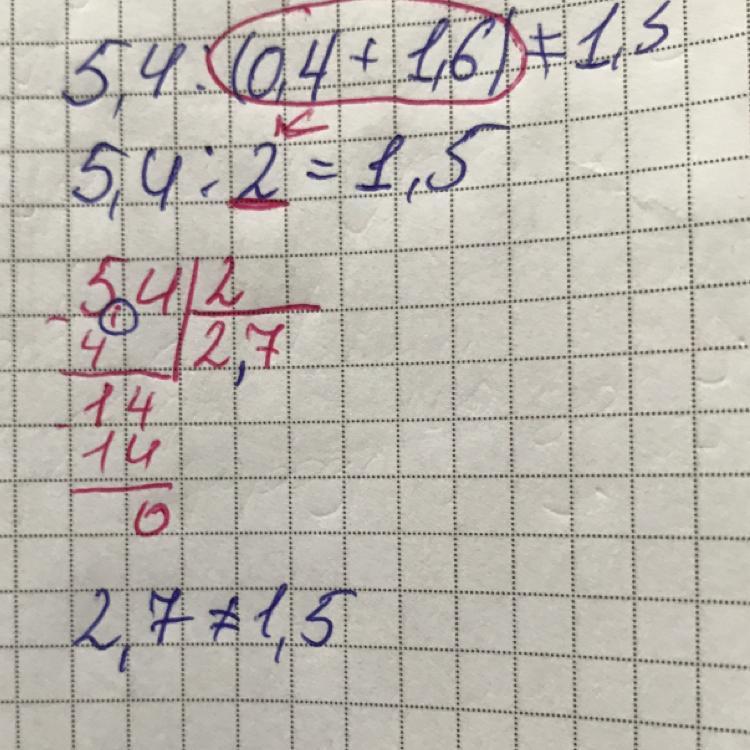 5,4 : (0,4 + 1,6) ≠ 1,5
5,4 : 2 = 1,5
5,4 | 2
- 4 | 2,7
14
- 14
0
2,7 ≠ 1,5